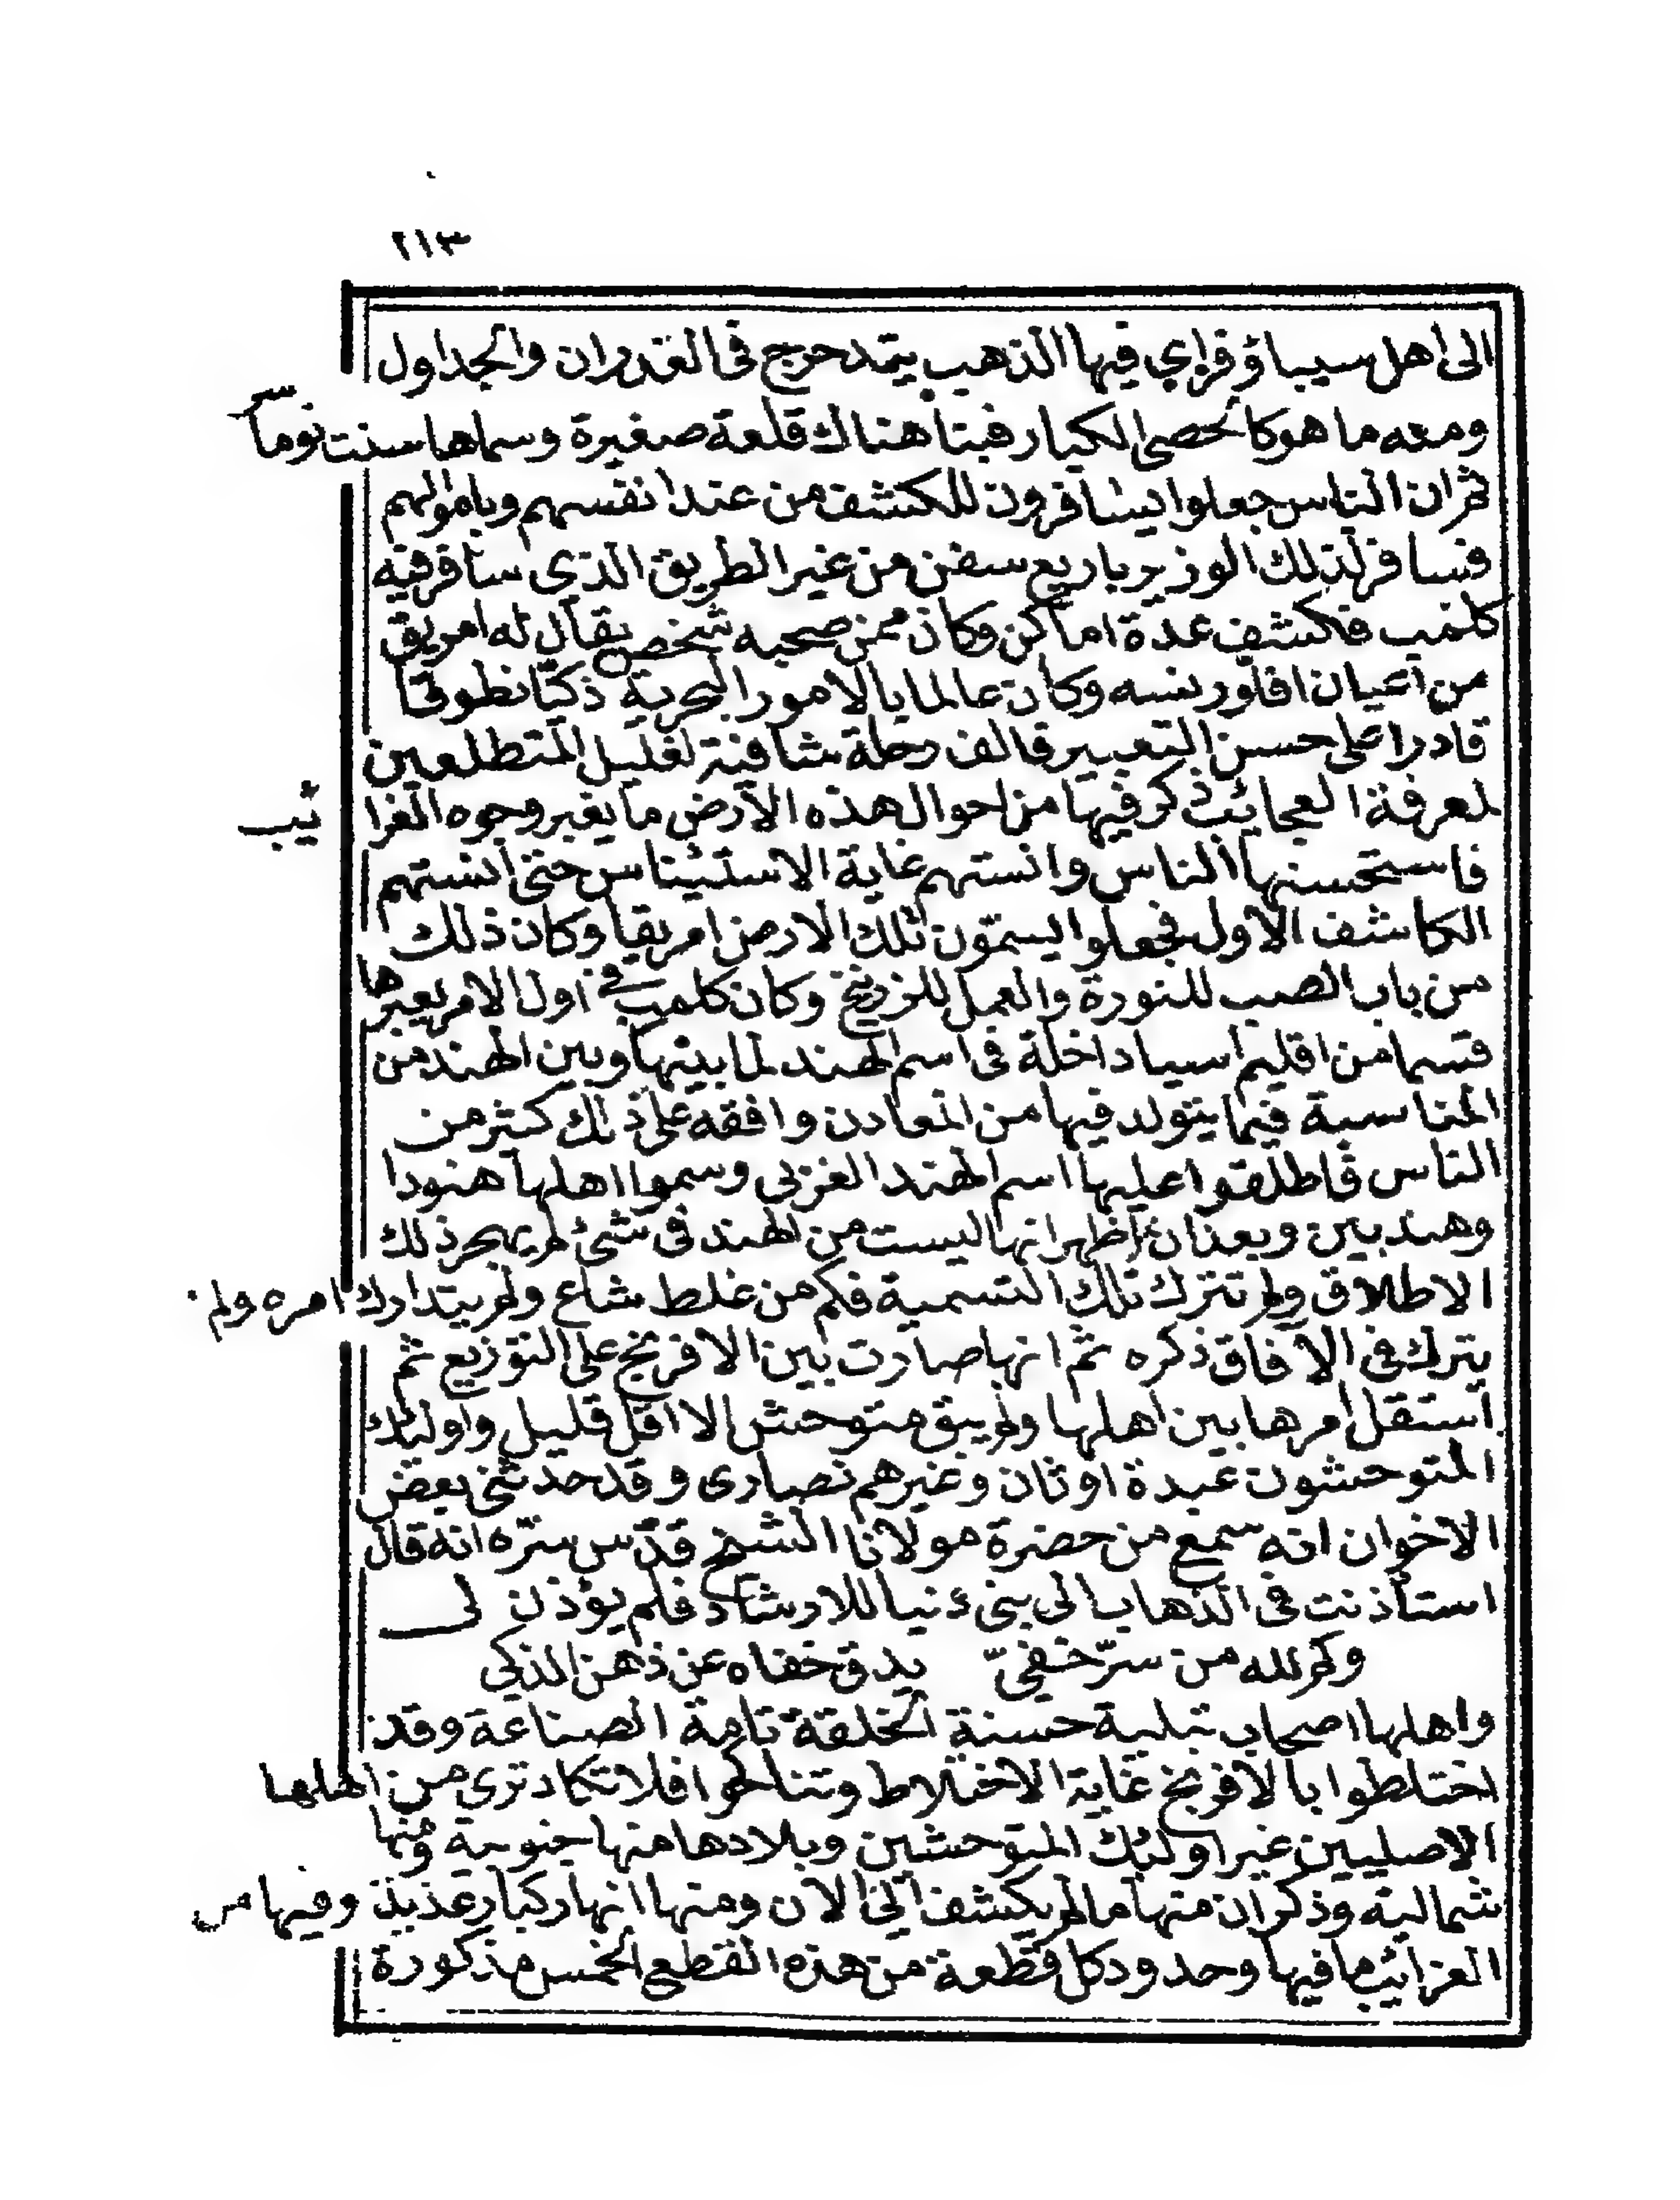 ٢١٣
الى اهل سيباؤ فراي فيها الذهب يتمدحرج فى الغدران والجداول
ومعه ما هو كالحصى الكبار فبنا هناك قلعة صغيرة وسماها سنت نوماس
ثم ان الناس جعلوا يسافرون للكشف من عند انفسهم وباموالهم
فسافر لذلك الوزير باربع سفن من غير الطريق الذي سافر فيه
كلمب فكشف عدة اماكن وكان ممن صحبه شخص يقال له امريق
من اعيان افلورنسه وكان عالما بالامور البحرية ذكيّا نطوقا
قادرا على حسن التعبير فالف رحلة شافية لغليل المتطلعين
لمعرفة العجائب ذكر فيها من احوال هذه الارض ما يغبر وجوه الغرا ئب
فاستحسنها الناس وانستهم غاية الاستيناس حتى انستهم
الكاشف الاول فجعلوا يسمّون تلك الارض امريقا وكان ذلك
من باب الصب للنورة والعمل للزرنيخ وكان كلمب فى اول الامر يعبرها
قسما من اقليم اسيا داخلة فى اسم الهند لما بينها وبين الهند من
المناسبة فيما يتولد فيها من المعادن وافقه على ذلك كثر من
الناس فاطلقوا عليها اسم الهند الغربى وسموا اهلها هنودا
وهنديين وبعد ان ظهر انها ليست من الهند فى شئ لم يهجر ذلك
الاطلاق ولم تترك تلك التسمية فكم من غلط شاع ولم يتدارك امره ولم
يترك فى الآفاق ذكره ثم انها صارت بين الافرنج على التوزيع ثم
استقل امرها بين اهلها ولم يبق متوحش الا اقل قليل واولئك
المتوحشون عبدة اوثان وغيرهم نصارى وقد حدثنى بعض
الاخوان انه سمع من حضرة مولانا الشيخ قدّس سرّه انه قال
استأذنت فى الذهاب الى ينى دنيا للارشاد فلم يؤذن لى
وكم لله من سرّ خفىّ يدق خفاه عن ذهن الذكى
واهلها اصحاب نبلية حسنة الخلقة تامة الصناعة وقد
اختلطوا بالافرنج غاية الاختلاط وتناكحوا فلا تكاد ترى من اهلها
الاصليين غير اولئك المتوحشين وبلادها منها جنوبية ومنها
شمالية وذكر ان منها ما لم يكشف الى الآن ومنها انهار كبار عذبة وفيها من
الغرائب ما فيها وحدود كل قطعة من هذه القطع الخمس مذكورة